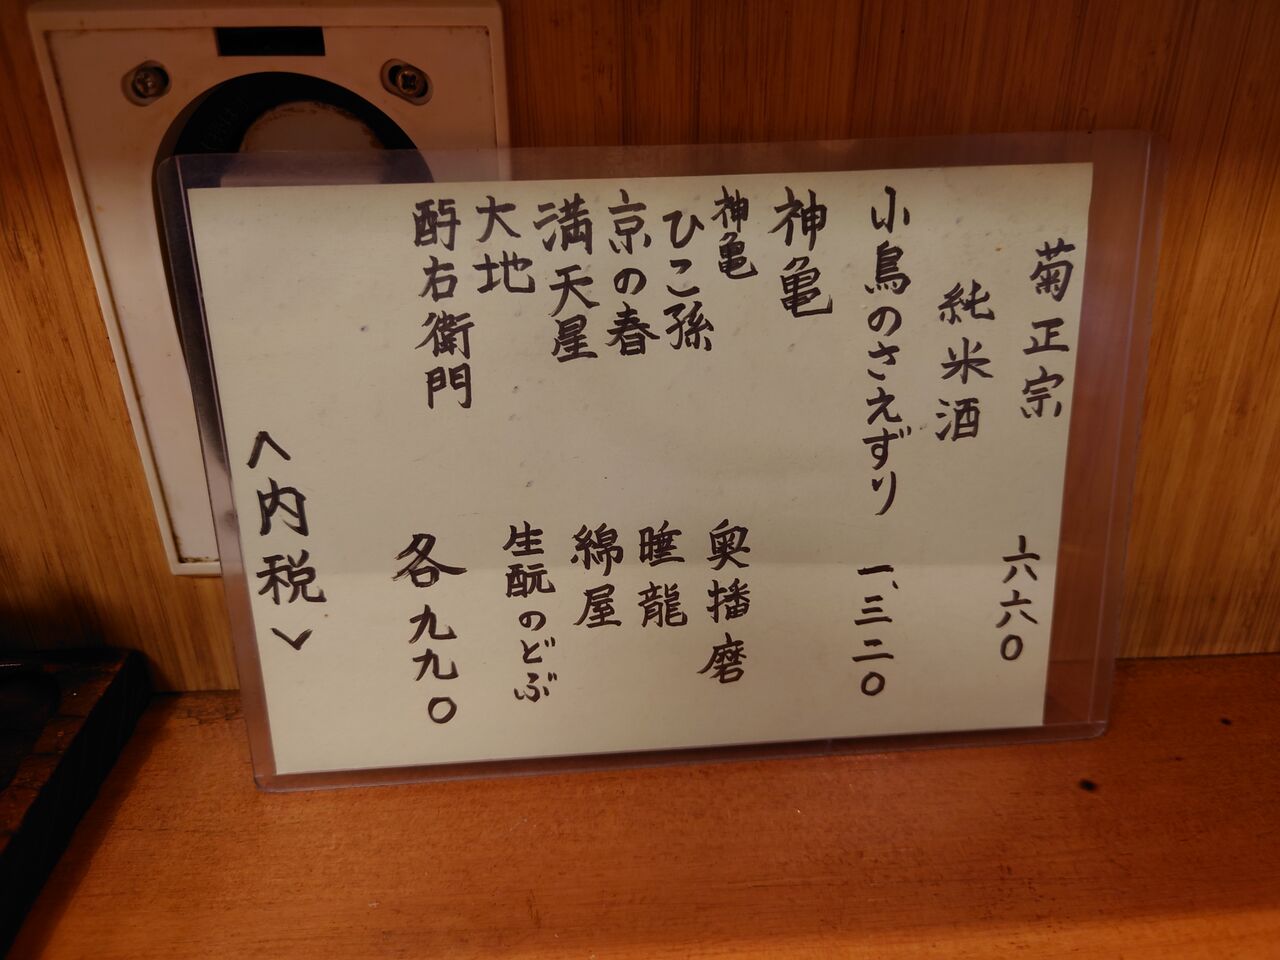 菊正宗 六六〇
純米酒
小鳥のさえずり 一、三二〇
神亀
神亀 奥播磨
ひこ孫 睡龍
京の春 綿屋
満天星 生酛のどぶ
大地
酉右衛門 各九九〇
〈内税〉